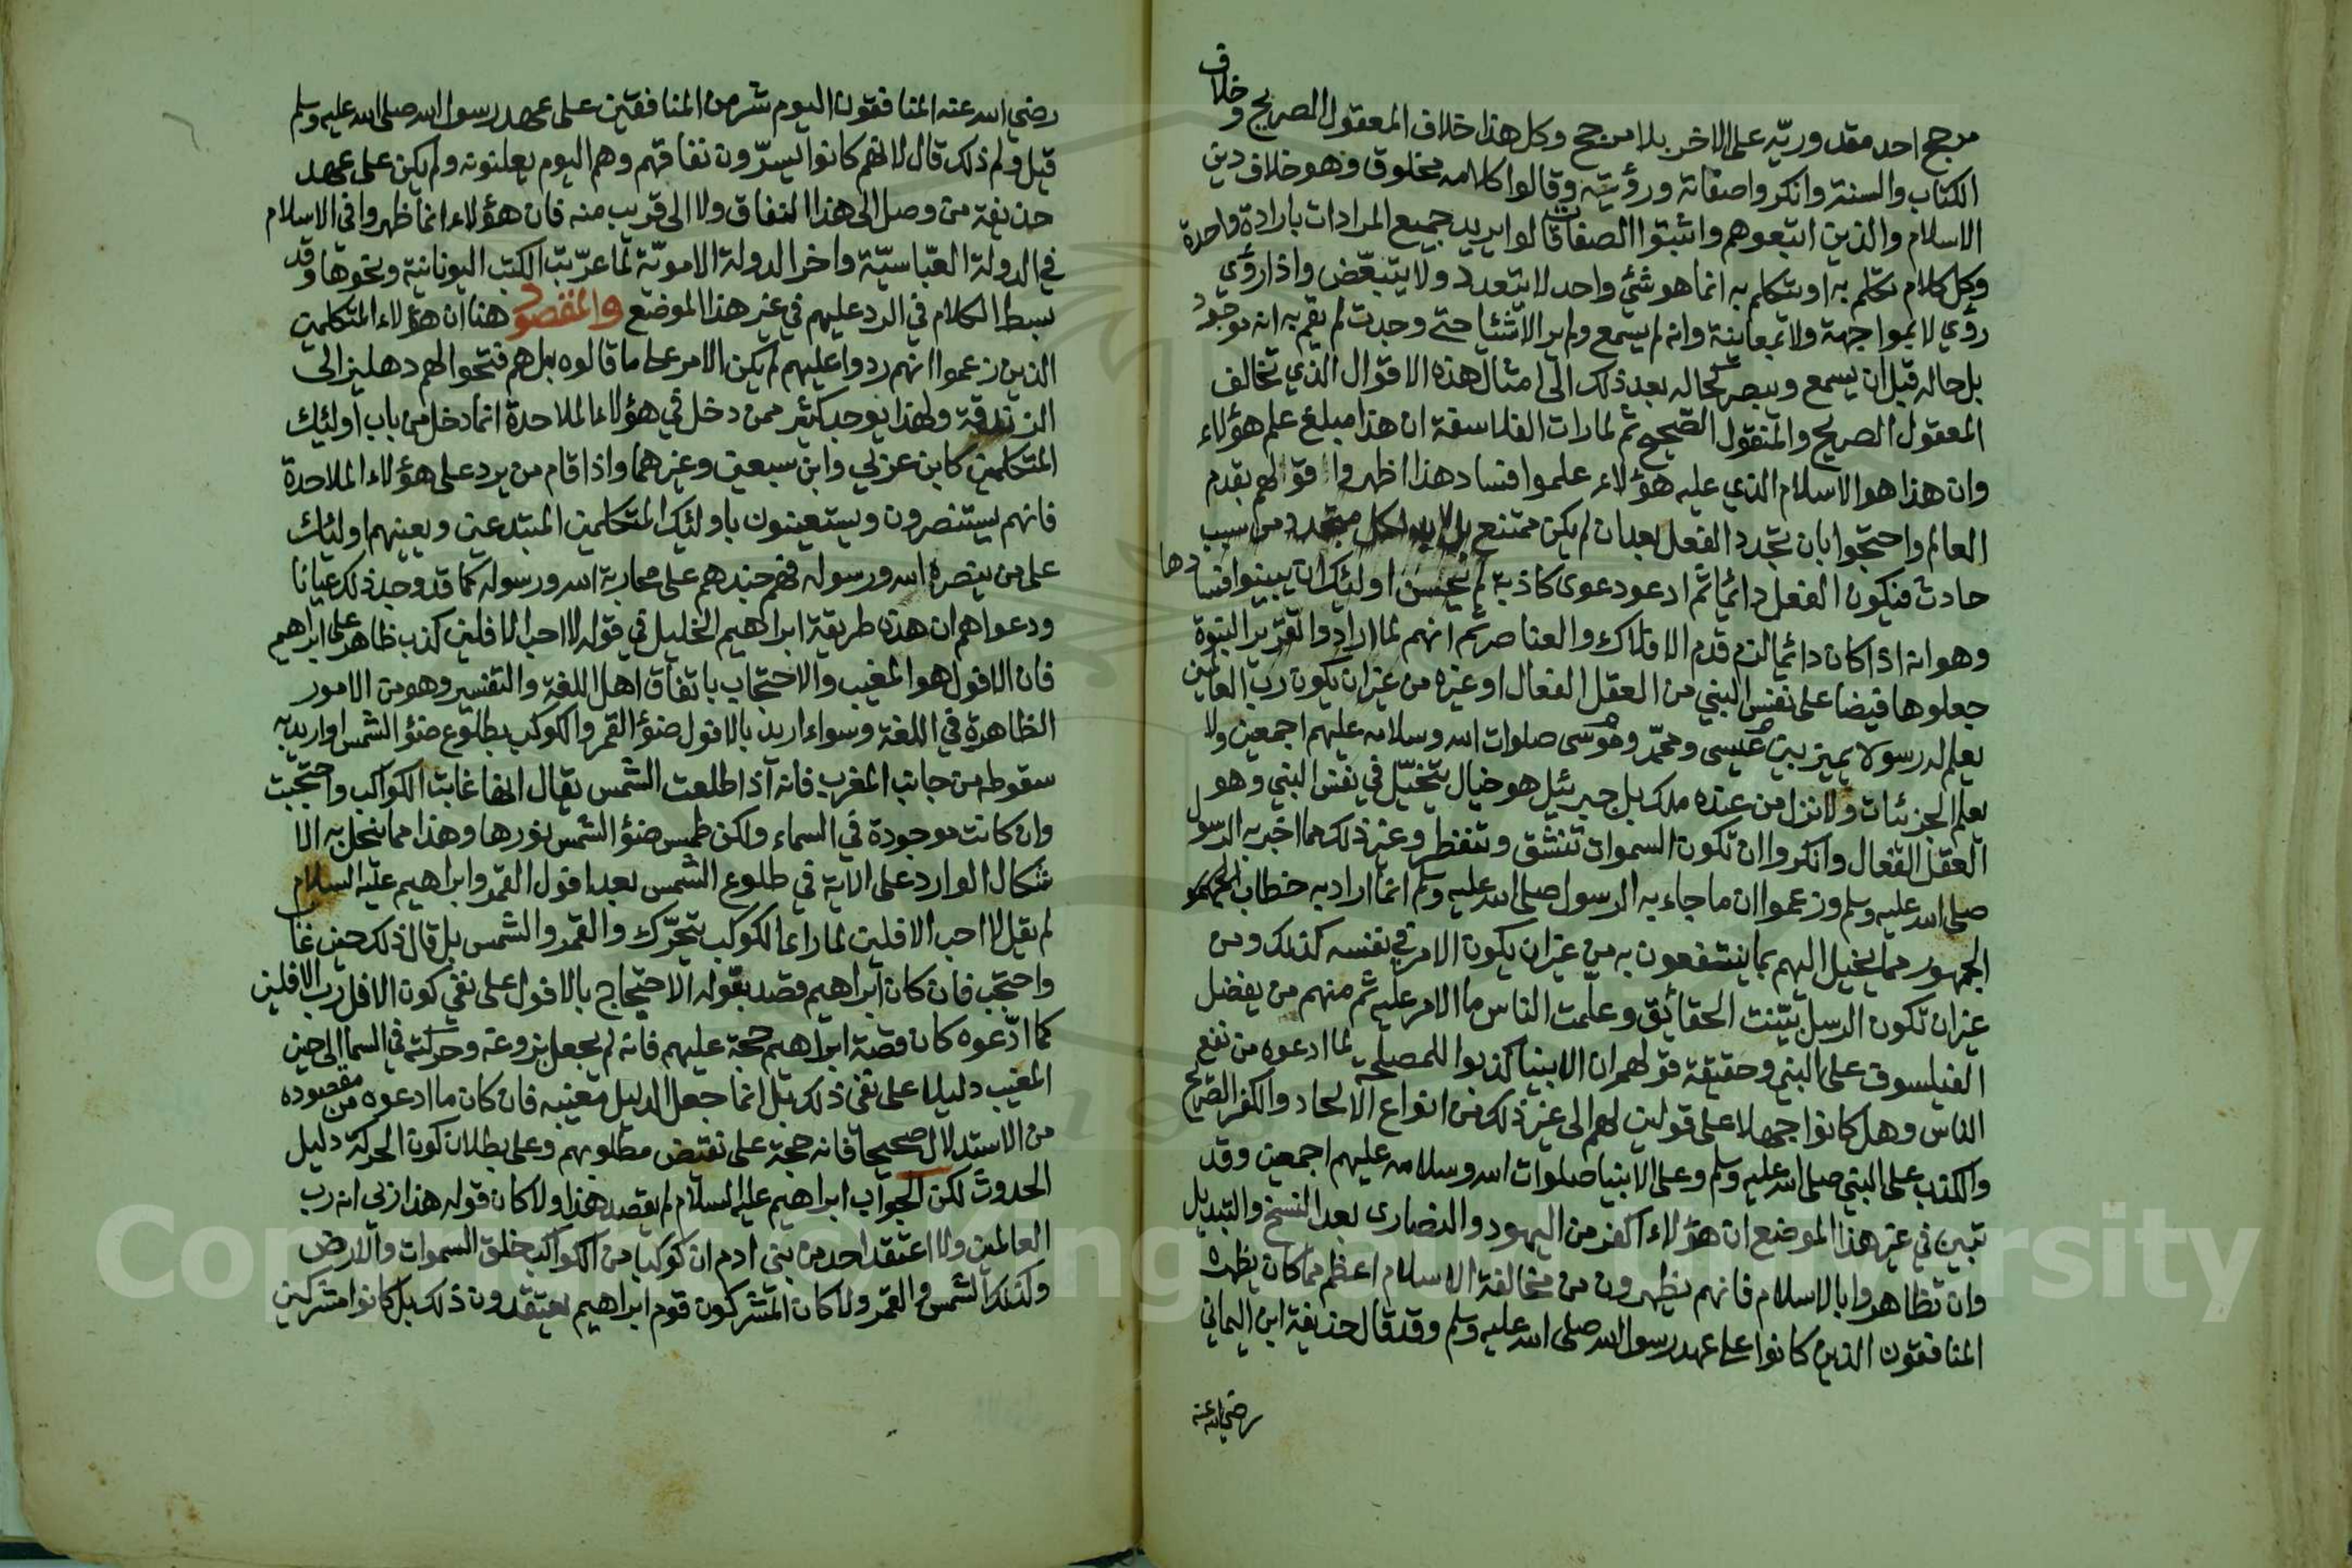 مرجح احد مقدوريّه على الاخر بلا مرجح وكل هذا خلاف المعقول الصريح وخلاف
الكتاب والسنة وانكروا صفاته ورؤيته وقالوا كلامه مخلوق وهو خلاف دين
الاسلام والذين اتبعوهم واثبتوا الصفات قالوا يريد جميع المرادات بارادة واحدة
وكل كلام تكلم به او يتكلم به انما هو شئ واحد لا يتعدد ولا يتبعّض واذا رؤي
رؤي لا بمواجهة ولا بمعاينة وانه لم يسمع ولم ير الاشيا حتى وجدت لم يقم به انه موجود
بل حاله قبل ان يسمع ويبصر كحاله بعد ذلك الى امثال هذه الاقوال الذي تخالف
المعقول الصريح والمنقول الصحيح ثم لما رات الفلاسفة ان هذا مبلغ علم هؤلاء
وان هذا هو الاسلام الذي عليه هؤلاء علموا فساد هذا اظهروا قولهم بقدم
العالم واحتجوا بان تجدد الفعل بعد ان لم يكن ممتنع بل لا بد لكل متجدد من سبب
حادث فيكون الفعل دائما ثم ادعو دعوى كاذبة لم يحسن اولئك ان يبينوا فسادها
وهو انه اذا كان دائما لزم قدم الافلاك والعناصر ثم انهم لما ارادوا تقرير النبوة
جعلوها فيضا على نفس النبي من العقل الفعال او غيره من غير ان يكون رب العالمين
يعلم له رسولا يميز بين عيسى ومحمّد وموسى صلوات الله وسلامه عليهم اجمعين ولا
يعلم الجزئات ولا نزل من عنده ملك بل جبرئيل هو خيال يتخيّل في نفس النبي وهو
العقل الفعال وانكروا ان تكون السموات تنشق وتنفطر وغير ذلك مما اخبر به الرسول
صلى الله عليه وسلم وزعموا ان ما جاء به الرسول صلى الله عليه وسلم انما اراد به خطاب
الجمهور مما يخيل اليهم بما ينتفعون به من غير ان يكون الامر في نفسه كذلك ومن
غير ان تكون الرسل بيّنت الحقائق وعلّمت الناس ما الامر عليه ثم منهم من يفضل
الفيلسوف على النبي وحقيقة قولهم ان الانبيا كذبوا للمصلحة لما ادعوه من نفع
الناس وهل كانوا جهلا على قولين لهم الى غير ذلك من انواع الالحاد والكفر الصريح
والكذب على النبي صلى الله عليه وسلم وعلى الانبيا صلوات الله وسلامه عليهم اجمعين وقد
تبين في غير هذا الموضع ان هؤلاء اكفر من اليهود والنصارى بعد النسخ والتبديل
وان تظاهروا بالاسلام فانهم يظهرون من مخالفة الاسلام اعظم مما كان يظهره
المنافقون الذين كانوا على عهد رسول الله صلى الله عليه وسلم وقد قال حذيفة ابن اليماني
رضي الله عنه
رضي الله عنه المنافقون اليوم شر من المنافقين على عهد رسول الله صلى الله عليه وسلم
قيل ولم ذلك قال لانهم كانوا يسرّون نفاقهم وهم اليوم يعلنونه ولم يكن على عهد
حذيفة من وصل الى هذا النفاق ولا الى قريب منه فان هؤلاء انما ظهروا في الاسلام
في الدولة العبّاسيّة واخر الدولة الامويّة لما عرّبت الكتب اليونانية ونحوها وقد
بسط الكلام في الرد عليهم في غير هذا الموضع والمقصود هنا ان هؤلاء المتكلمين
الذين زعموا انهم ردوا عليهم لم يكن الامر على ما قالوه بل هم فتحوا لهم دهليز الى
الزندقة ولهذا يوجد كثير ممن دخل في هؤلاء الملاحدة انما دخل من باب اولئك
المتكلمين كابن عربي وابن سبعين وغيرهما واذا قام من يرد على هؤلاء الملاحدة
فانهم يستنصرون ويستعينون باولئك المتكلمين المبتدعين ويعينهم اولئك
على من ينصره الله ورسوله فهم جندهم على محاربة الله ورسوله كما قد وجد ذلك عيانا
ودعواهم ان هذه طريقة ابراهيم الخليل في قوله لا احب الافلين كذب ظاهر على ابراهيم
فان الافول هو المغيب والاحتجاب باتفاق اهل اللغة والتفسير وهو من الامور
الظاهرة في اللغة وسواء اريد بالافول ضؤ القمر والكوكب بطلوع ضؤ الشمس او اريد به
سقوطه من جانب المغرب فانه اذا طلعت الشمس يقال انها غابت الكواكب واحتجبت
وان كانت موجودة في السماء ولكن طمس ضؤ الشمس نورها وهذا مما ينحل به الا
شكال الوارد على الاية في طلوع الشمس بعد افول القمر وابراهيم عليه السلام
لم يقل لا احب الافلين لما راى الكوكب يتحرّك والقمر والشمس بل قال ذلك حين غاب
واحتجب فان كان ابراهيم قصد بقوله الاحتجاج بالافول على نفي كون الافل رب الافلين
كما ادّعوه كان قصة ابراهيم حجة عليهم فانه لم يجعل بزوغه وحركته في السما الى حين
المغيب دليلا على نفي ذلك بل انما جعل الدليل مغيبه فان كان ما ادعوه من مقصوده
من الاستدلال صحيحا فانه حجة على نقيض مطلوبهم وعلى بطلان كون الحركة دليل
الحدوث لكن الجواب ابراهيم عليه السلام لم يقصد هذا ولا كان قوله هذا ربي انه رب
العالمين ولا اعتقد احد من بني ادم ان كوكبا من الكواكب خلق السموات والارض
وكذلك الشمس والقمر ولا كان المشركون قوم ابراهيم يعتقدون ذلك بل كانوا مشركين